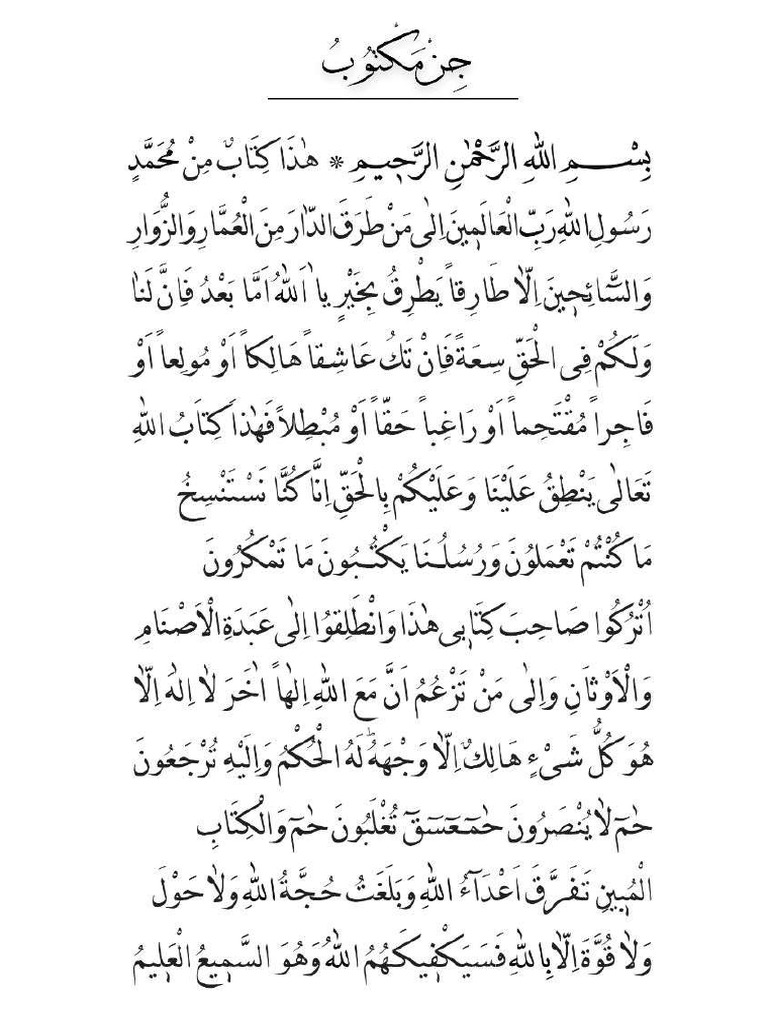 جِنْ مَكْتُوبُ
بِسْــــمِ اللهِ الرَّحْمٰنِ الرَّحٖيمِ * هٰذَا كِتَابٌ مِنْ مُحَمَّدٍ
رَسُولِ اللهِ رَبِّ الْعَالَمٖينَ اِلٰى مَنْ طَرَقَ الدَّارَ مِنَ الْعُمَّارِ وَالزُّوَارِ
وَالسَّٓائِحٖينَ اِلَّا طَارِقاً يَطْرِقُ بِخَيْرٍ يَا اَللهُ اَمَّا بَعْدُ فَاِنَّ لَنَا
وَلَكُمْ فِى الْحَقِّ سِعَةً فَاِنْ تَكُ عَاشِقاً هَالِكاً اَوْ مُولِعاً اَوْ
فَاجِراً مُقْتَحِماً اَوْ رَاغِباً حَقّاً اَوْ مُبْطِلاً فَهٰذَا كِتَابُ اللهِ
تَعَالٰى يَنْطِقُ عَلَيْنَا وَعَلَيْكُمْ بِالْحَقِّ اِنَّا كُنَّا نَسْتَنْسِخُ
مَا كُنْتُمْ تَعْمَلُونَ وَرُسُلُـنَا يَكْتُـبُونَ مَا تَمْكُرُونَ
اُتْرُكُوا صَاحِبَ كِتَابٖى هٰذَا وَانْطَلِقُوا اِلٰى عَبَدَةِ الْاَصْنَامِ
وَالْاَوْثَانِ وَاِلٰى مَنْ تَزْعُمُ اَنَّ مَعَ اللهِ اِلٰهاً اٰخَرَ لَا اِلٰهَ اِلَّا
هُوَ كُلُّ شَىْءٍ هَالِكٌ اِلَّا وَجْهَهُ لَهُ الْحُكْمُ وَاِلَيْهِ تُرْجَعُونَ
حٰمٓ لَا يُنْصَرُونَ حٰمٓعٓسٓقٓ تُغْلَبُونَ حٰمٓ وَالْكِتَابِ
الْمُبٖينِ تَفَرَّقَ اَعْدَٓاءُ اللهِ وَبَلَغَتْ حُجَّةُ اللهِ وَلَا حَوْلَ
وَلَا قُوَّةَ اِلَّا بِاللهِ فَسَيَكْفٖيكَهُمُ اللهُ وَهُوَ السَّمٖيعُ الْعَلٖيمُ